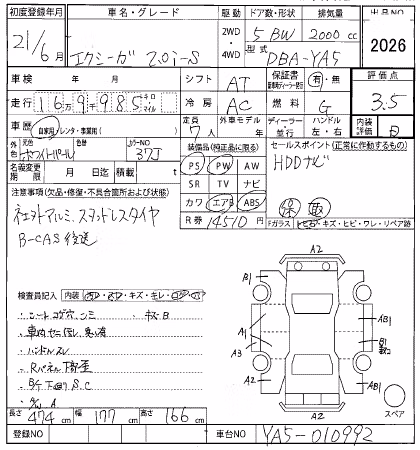 初度登録年月 車名・グレード 駆動 ドア数・形状 排気量 出品NO
21/6月 エクシーガ 2.0i-S 2WD・4WD 5 BW 2000 cc 2026
型式 DBA-YA5
車検 年 月 シフト AT 保証書 有・無 評価点
走行 16万9千985 キロ マイル 冷房 AC 燃料 G 3.5
車歴 自家用/レンタ・事業用( ) 定員 7人 外車モデル 年 ディーラー 並行 ハンドル 左・右 内装評価
外色 元色 ホワイトパール 色替 カラーNO 37J 装備品(純正品に限る) セールスポイント(正常に作動するもの)
名義変更期限 月 日 積載 t PS PW AW HDDナビ
注意事項(欠品・修復・不具合箇所および状態) SR TV ナビ
社外アルミ、スタッドレスタイヤ カワ エアB ABS
B-CAS後送 R券 14510円 保 取
Fガラス トビ石・キズ・ヒビ・ワレ・リペア跡
検査員記入 内装
・シートコゲ穴、シミ
・ハンドルスレ
・Rパネル下部歪
・B/ドア S.C
A2
B1
A1
A3
A2
A2
AB1
A1
B1
AB1
A2
スペア
長さ 474 cm 幅 177 cm 高さ 166 cm
登録NO 車台NO YA5-010992